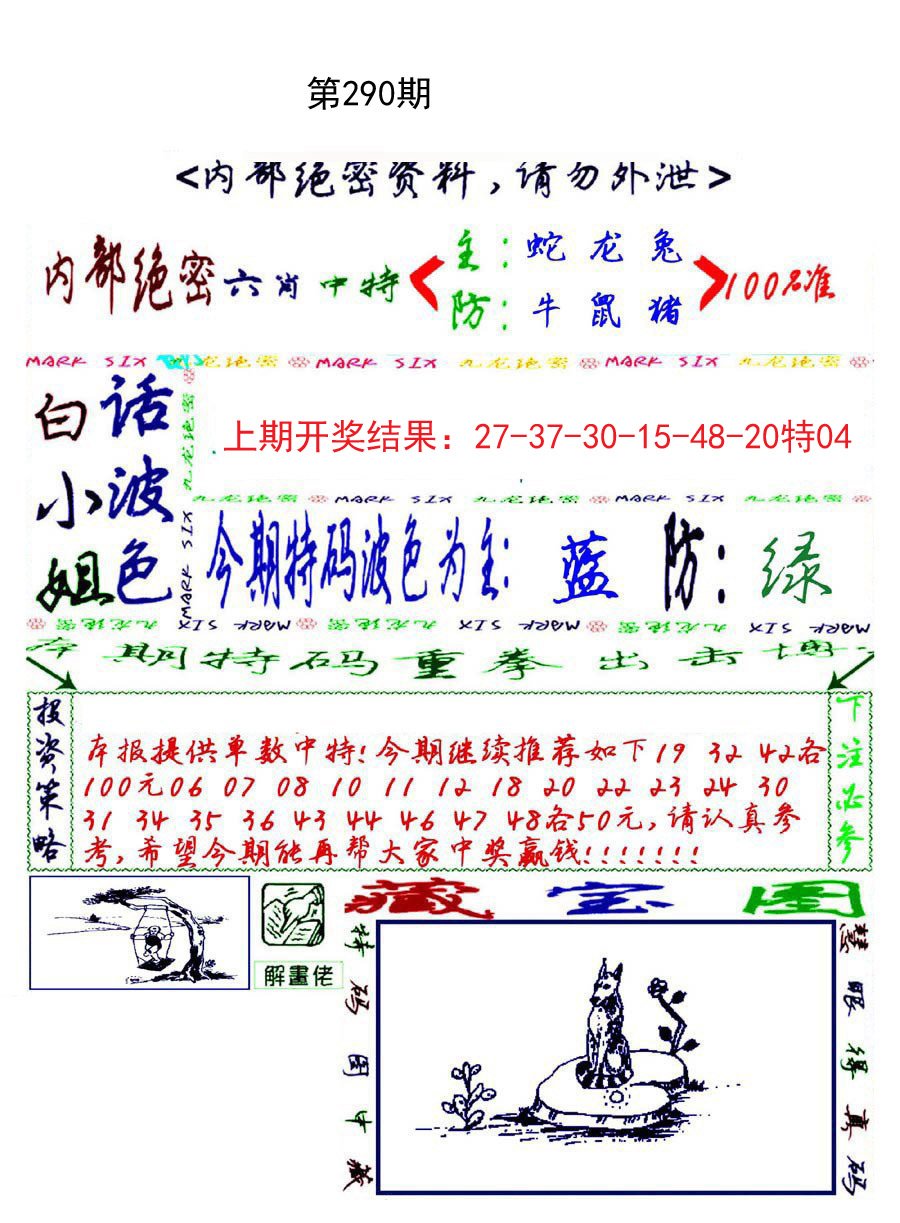 第290期
<内部绝密资料,请勿外泄>
内部绝密六肖中特
主:蛇龙兔
防:牛鼠猪
100%准
MARK SIX 九龙绝密 MARK SIX 九龙绝密 MARK SIX 九龙绝密
白小姐
话波色
九龙绝密 MARK SIX
上期开奖结果：27-37-30-15-48-20特04
九龙绝密 MARK SIX 九龙绝密 MARK SIX 九龙绝密
今期特码波色为主: 蓝 防: 绿
九龙绝密 MARK SIX 九龙绝密 MARK SIX 九龙绝密 MARK SIX
本期特码重拳出击
投资策略
本报提供单数中特!今期继续推荐如下19 32 42各
100元06 07 08 10 11 12 18 20 22 23 24 30
31 34 35 36 43 44 46 47 48各50元,请认真参
考,希望今期能再帮大家中奖赢钱!!!!!!!
下注必参
解畫佬
藏宝图
特码图中藏
慧眼得真码